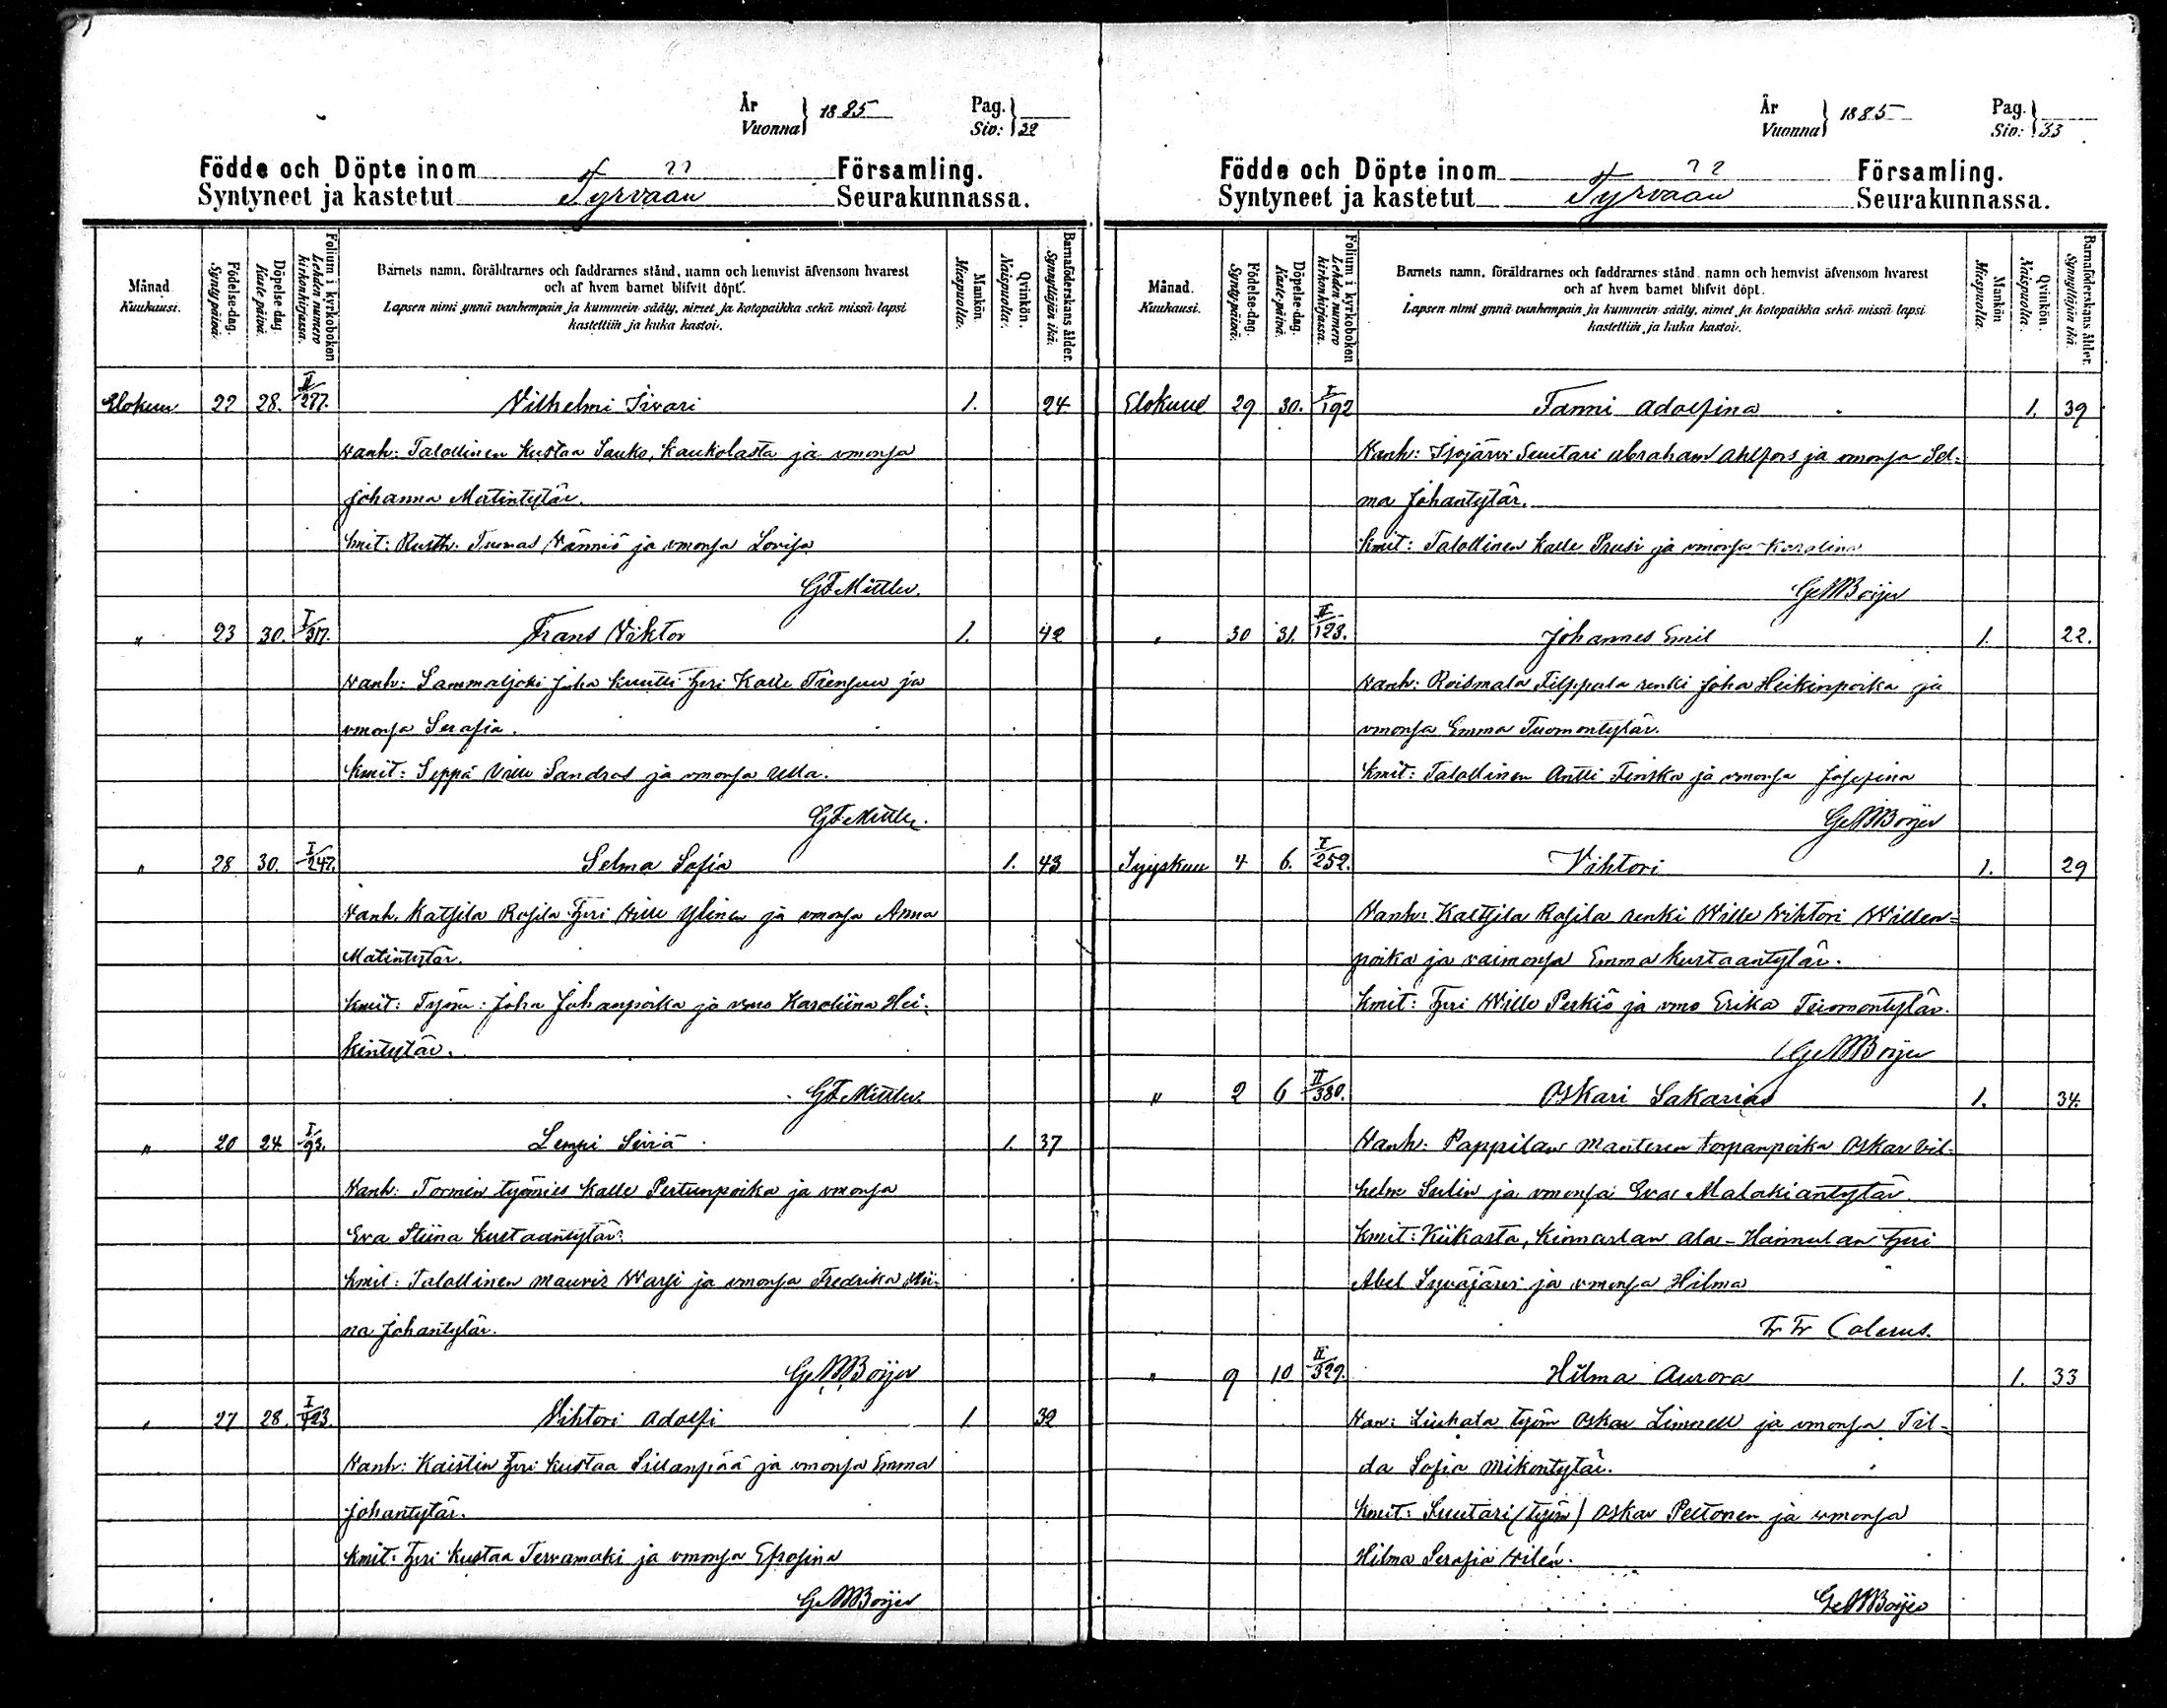 År
Vuonna } 1885 Pag.
Siv: } 32
Födde och Döpte inom „ Församling.
Syntyneet ja kastetut Tyrvään Seurakunnassa.
Månad. Kuukausi.
Födelse-dag. Syntypäivä.
Döpelse-dag. Kastepäivä.
Folium i kyrkoboken Lehden numero kirkonkirjassa.
Barnets namn, föräldrarnes och faddrarnes stånd, namn och hemvist äfvensom hvarest
och af hvem barnet blifvit döpt.
Lapsen nimi ynnä vanhempain ja kummein sääty, nimet ja kotopaikka sekä missä lapsi
kastettiin ja kuka kastoi.
Mankön. Miespuolta.
Qvinkön. Naispuolta.
Barnaföderskans ålder. Synnyttäjän ikä.
Elokuu 22 28. II/277. Vilhelmi Iivari 1. 24
Vanh: Talollinen Kustaa Sauko, Kaukolasta ja vmonsa
Johanna Matintytär.
Kmit: Rusth. Tuomas Vänniö ja vmonsa Lovisa
GF Mittler.
„ 23 30. I/317. Frans Viktor 1. 42
Vanh: Sammaljoki Juha Kuutti tjri Kalle ja
vmonsa Serafia.
Kmit: Seppä Ville Sandras ja vmonsa Ulla.
GF Mittler.
„ 28 30. I/247. Selma Sofia 1. 43
Vanh. Katsila Rosila tjri Ville Ylinen ja vmonsa Anna
Matintytär.
Kmit: Työm: Juha Johanpoika ja vmo Karoliina Hei-
kintytär.
GF Mittler.
„ 20 24 I/93. Lempi Siiriä 1. 37
Vanh: Tormin työmies Kalle Pertunpoika ja vmonsa
Eva Stiina Kustaantytär.
Kmit: Talollinen Mauriz Warsi ja vmonsa Fredrika Mii-
na Johantytär.
GeMBoijer
„ 27 28. I/423. Vihtori Adolfi 1. 32
Vanh: Kaistin tjri Kustaa Sillanpää ja vmonsa Emma
Johantytär.
Kmit: tjri Kustaa Tervamaki ja vmonsa Efrosina
GeMBoijer
År
Vuonna } 1885 Pag.
Siv: } 33
Födde och Döpte inom „ Församling.
Syntyneet ja kastetut Tyrvään Seurakunnassa.
Månad. Kuukausi.
Födelse-dag. Syntypäivä.
Döpelse-dag. Kastepäivä.
Folium i kyrkoboken Lehden numero kirkonkirjassa.
Barnets namn, föräldrarnes och faddrarnes stånd, namn och hemvist äfvensom hvarest
och af hvem barnet blifvit döpt.
Lapsen nimi ynnä vanhempain ja kummein sääty, nimet ja kotopaikka sekä missä lapsi
kastettiin ja kuka kastoi.
Mankön Miespuolta.
Qvinkön. Naispuolta.
Barnaföderskans ålder. Synnyttäjän ikä.
Elokuu 29 30. I/192 Fanni Adolfina 1. 39
Vanh: Isojärvi Suutari Abraham Ahlfors ja vmonsa Sel-
ma Johantytär.
Kmit: Talollinen Kalle Prusi ja vmonsa Karolina
GeMBoijer
„ 30 31. II/123. Johannes Emil 1. 22.
Vanh: Roismala Filppula renki Juha Heikinpoika ja
vmonsa Emma Tuomontytär.
Kmit: Talollinen Antti Finska ja vmonsa Josefina
GeMBoijer
Syyskuu 4 6. I/252. Vihtori 1. 29
Vanh: Kaltsila Rosila renki Wille Vihtori Willen-
poika ja vaimonsa Emma Kustaantytär.
Kmit: tjri Wille Perkiö ja vmo Erika Tuomontytär.
GeMBoijer
„ 2 6 II/380. Oskari Sakarias 1. 34.
Vanh: Pappilan Manteren torpanpoika Oskar Vil-
helm Sulin ja vmonsa Eva Malakiantytär.
Kmit: Kiikasta, Kinnarlan Ala-Hannulan tjri
Abel Syväjärvi ja vmonsa Hilma
Fr Fr Calenus.
„ 9 10 II/329. Hilma Aurora 1. 33
Van: Liuhala työm Oskar Limnell ja vmonsa Til-
da Sofia Mikontytär.
Kmit: Suutari (työm) Oskar Peltonen ja vmonsa
Hilma Serafia Vilén.
GeMBoijer